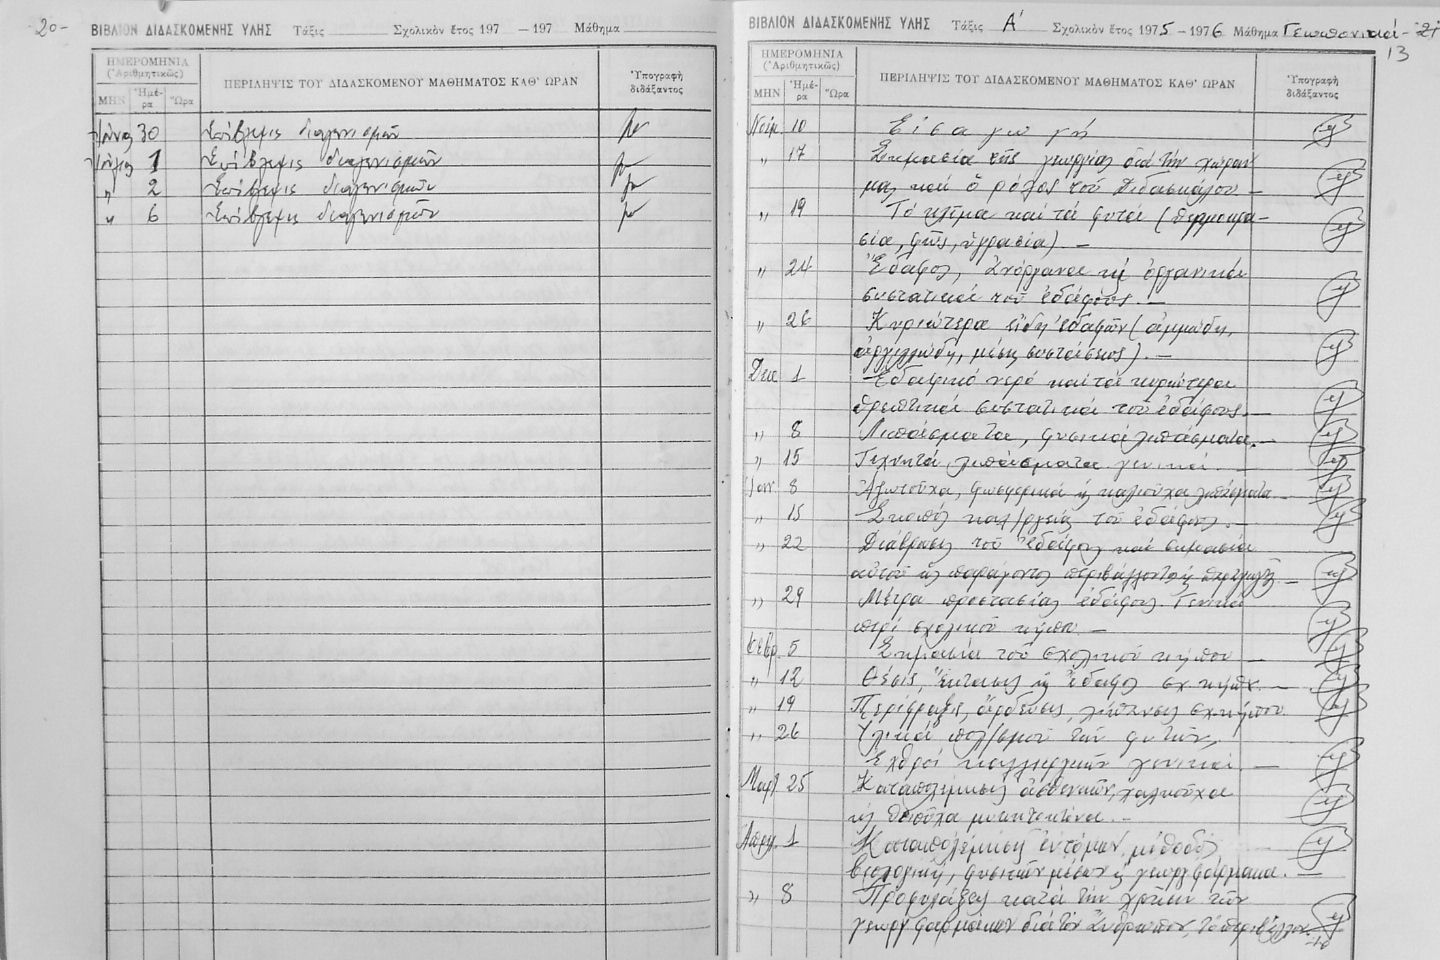 -20-
ΒΙΒΛΙΟΝ ΔΙΔΑΣΚΟΜΕΝΗΣ ΥΛΗΣ Τάξις Σχολικὸν ἔτος 197 — 197 Μάθημα
ΗΜΕΡΟΜΗΝΙΑ
(Ἀριθμητικῶς)
ΜΗΝ Ἡμέ-ρα Ὥρα
ΠΕΡΙΛΗΨΙΣ ΤΟΥ ΔΙΔΑΣΚΟΜΕΝΟΥ ΜΑΘΗΜΑΤΟΣ ΚΑΘ' ΩΡΑΝ
Ὑπογραφὴ
διδάξαντος
Ἰούνιος 30 Ἐπίβλεψις διαγωνισμῶν
Ἰούλιος 1 Ἐπίβλεψις διαγωνισμῶν
" 2 Ἐπίβλεψις διαγωνισμῶν
" 6 Ἐπίβλεψις διαγωνισμῶν
ΒΙΒΛΙΟΝ ΔΙΔΑΣΚΟΜΕΝΗΣ ΥΛΗΣ Τάξις Α' Σχολικὸν ἔτος 1975 — 1976 Μάθημα Γεωπονικά -21
13
ΗΜΕΡΟΜΗΝΙΑ
(Ἀριθμητικῶς)
ΜΗΝ Ἡμέ-ρα Ὥρα
ΠΕΡΙΛΗΨΙΣ ΤΟΥ ΔΙΔΑΣΚΟΜΕΝΟΥ ΜΑΘΗΜΑΤΟΣ ΚΑΘ' ΩΡΑΝ
Ὑπογραφὴ
διδάξαντος
Νοέμ. 10 Εἰσαγωγή
" 17 Σημασία τῆς γεωργίας διὰ τὴν χώραν
μας καὶ ὁ ρόλος τοῦ Διδασκάλου. —
" 19 Τὸ κλῖμα καὶ τὰ φυτά (θερμοκρα-
σία, φῶς, ὑγρασία). —
" 24 Ἔδαφος, ἀνόργανα κ' ὀργανικά
συστατικά τοῦ ἐδάφους. —
" 26 Κυριώτερα εἴδη ἐδαφῶν (ἀμμώδη,
ἀργιλλώδη, μέσης συστάσεως). —
Δεκ. 1 Ἐδαφικό νερό καὶ τὰ κυριώτερα
θρεπτικά συστατικά τοῦ ἐδάφους. —
" 8 Λιπάσματα, φυσικά λιπάσματα. —
" 15 Τεχνητά λιπάσματα γενικά. —
Ἰαν. 8 Ἀζωτοῦχα, φωσφορικά κ' καλιοῦχα λιπάσματα —
" 15 Σκοπός καλ/ργείας τοῦ ἐδάφους. —
" 22 Διάβρωσις τοῦ ἐδάφους καὶ σημασία
αὐτοῦ ὡς παράγοντος περιβάλλοντος —
" 29 Μέτρα προστασίας ἐδάφους. Γενικά
περί σχολικοῦ κήπου. —
Φεβρ. 5 Σημασία τοῦ σχολικοῦ κήπου —
" 12 Θέσις, ἔκτασις κ' ἔδαφος σχ. κήπου. —
" 19 Περίφραξις, ἄρδευσις, λίπανσις σχ. κήπου.
" 26 Ὑλικά πολ/σμοῦ τῶν φυτῶν,
Ἐχθροί καλλιεργειῶν γενικά. —
Μαρτ. 25 Καταπολέμησις ἀσθενειῶν, χαλκοῦχα
κ' θειοῦχα μυκητοκτόνα. —
Ἀπρίλ. 1 Καταπολέμησις ἐντόμων, μέθοδος
βιολογική, φυσικῶν μέσων κ' γεωργ. φάρμακα. —
" 8 Προφυλάξεις κατά τὴν χρῆσιν τῶν
γεωργ. φαρμάκων διὰ τὸν ἄνθρωπον, τὸ περιβάλλον